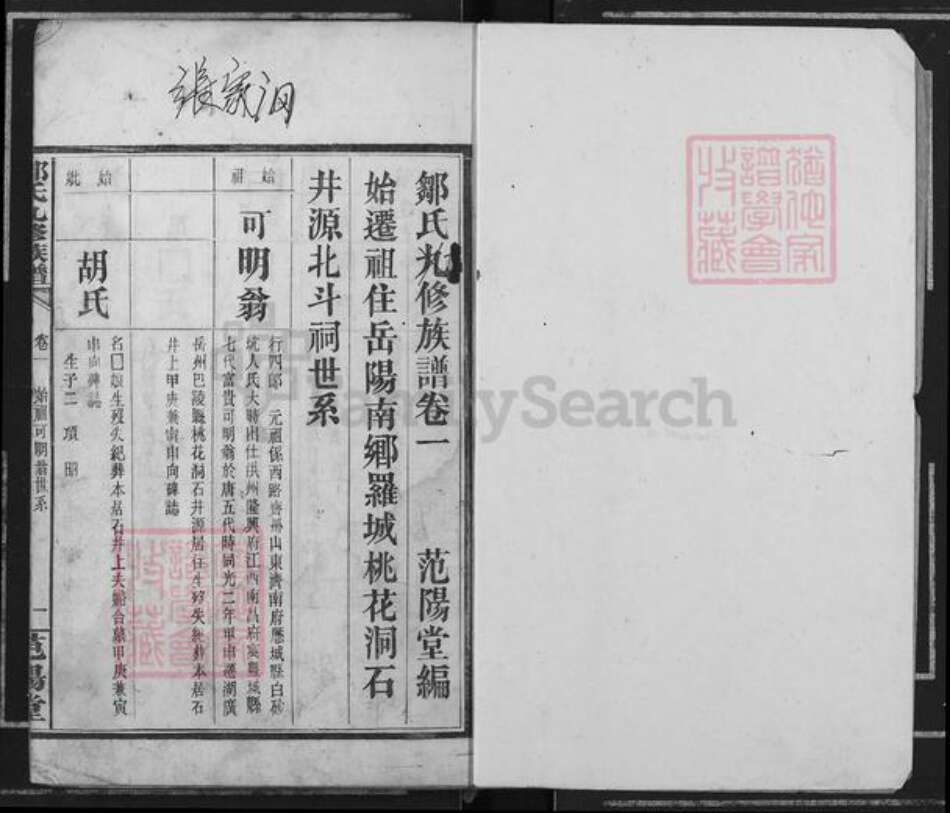 張家洞
鄒氏九修族譜卷一 范陽堂編
始遷祖住岳陽南鄉羅城桃花洞石
井源北斗祠世系
始祖
可明翁
行四郎 元祖係西路齊州山東濟南府歷城縣白砂
坑人氏大時出仕洪州隆興府江西南昌府縣城縣
七代富貴可明翁於唐五代時同光二年甲申遷湖廣
岳州巴陵縣桃花洞石井源居住生歿失紀葬本居石
井上甲庚兼寅申向碑誌
始妣
胡氏
名囗娘生歿失紀葬本居石井上夫合墓甲庚兼寅
申向碑誌
生子二 項 昭
鄒氏九修族譜
卷一
始祖可明翁世系
一
范陽堂
譜學會
收藏
FamilySearch